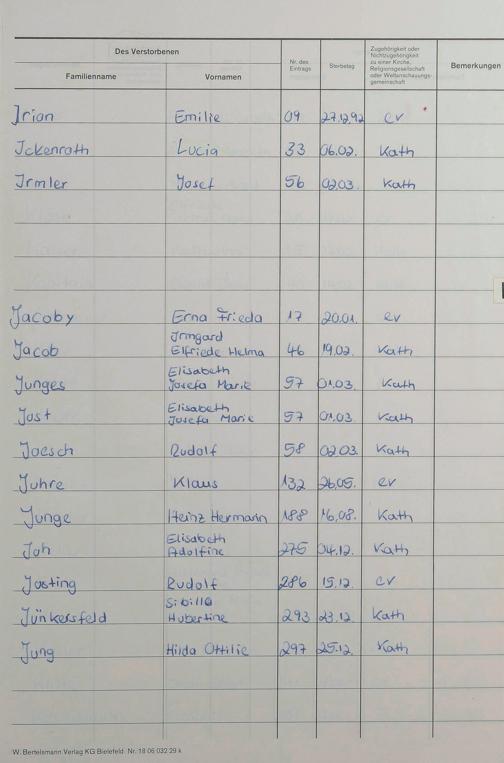 Des Verstorbenen
Familienname Vornamen Nr. des Eintrags Sterbetag Zugehörigkeit oder Nichtzugehörigkeit zu einer Kirche, Religionsgesellschaft oder Weltanschauungsgemeinschaft Bemerkungen
Irion Emilie 09 27.12.92 ev
Ickenroth Lucia 33 06.02. Kath
Irmler Josef 56 02.03. Kath
Jacoby Erna Frieda 17 20.01. ev
Jacob Irmgard Elfriede Helma 46 19.02. Kath
Junges Elisabeth Josefa Marie 57 01.03. Kath
Jost Elisabeth Josefa Marie 57 01.03. Kath
Joesch Rudolf 58 02.03. Kath
Juhre Klaus 132 26.05. ev
Junge Heinz Hermann 188 16.08. Kath
Joh Elisabeth Adolfine 275 04.12. Kath
Josting Rudolf 286 15.12. ev
Jünkersfeld Sibilla Hubertine 293 23.12. Kath
Jung Hilda Ottilie 297 25.12. Kath
W. Bertelsmann Verlag KG Bielefeld Nr. 18 06 032 29 k